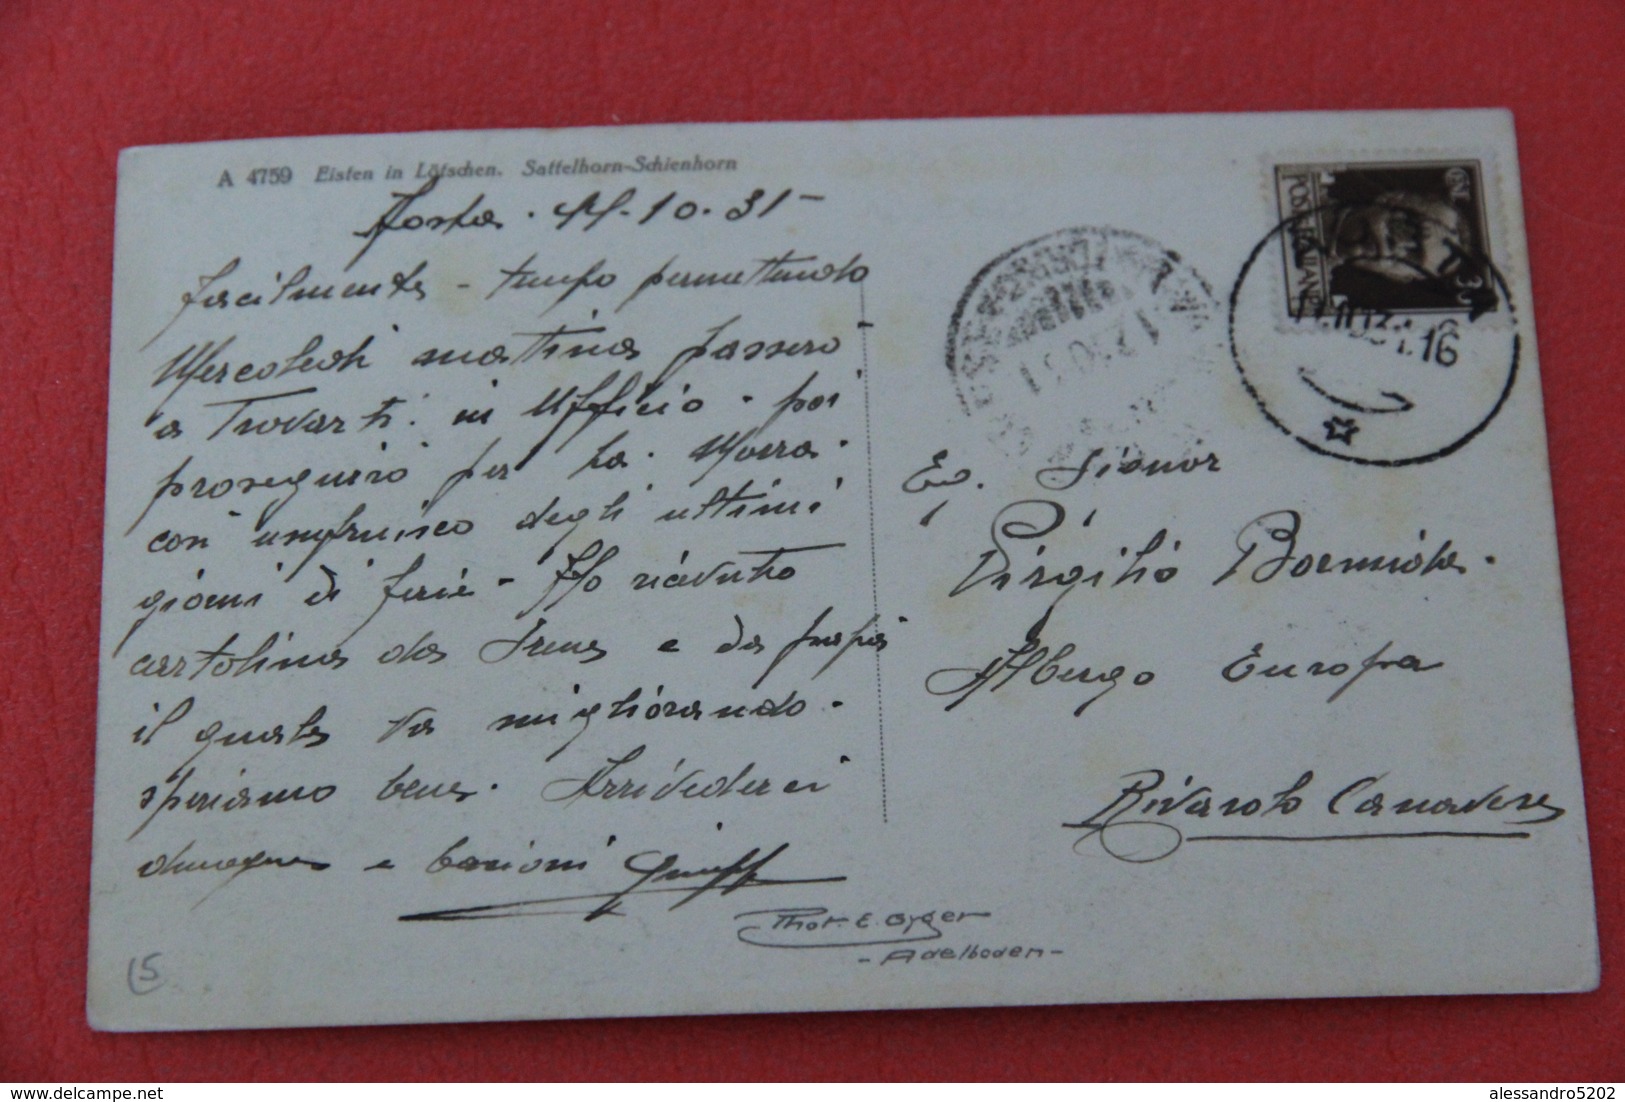 A 4759 Eisten in Lötschen. Sattelhorn-Schienhorn
Aosta. 11-10-31-
facilmente - tempo permettendo
Mercoledì mattina passerò
a Trovarti in Ufficio - poi
proseguirò per La Morra.
con usufruisco degli ultimi
giorni di ferie - Ho ricevuto
cartolina da Irena e da papà
il quale va migliorando.
speriamo bene. Arrivederci
e bacioni
Phot. E. Gyger
- Adelboden -
15
POSTE ITALIANE
11.10.31.16
Eg. Signor
Virgilio Bormida.
Albergo Europa
Rivarolo Canavese
alessandro5202